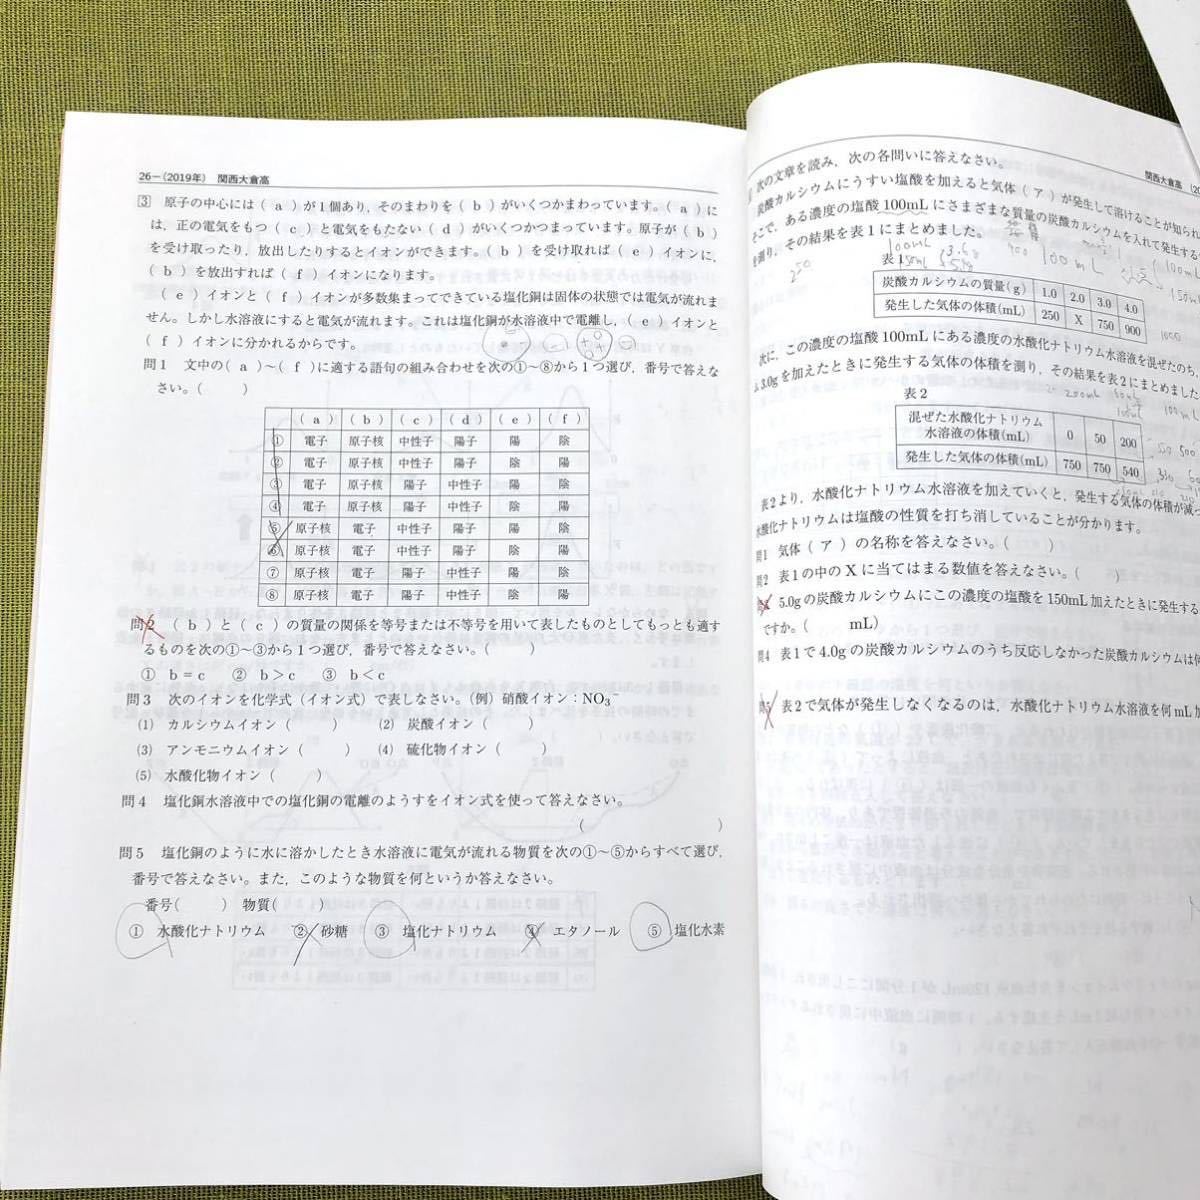 26－(2019年) 関西大倉高
3 原子の中心には（ a ）が1個あり，そのまわりを（ b ）がいくつかまわっています。（ a ）に
は，正の電気をもつ（ c ）と電気をもたない（ d ）がいくつかつまっています。原子が（ b ）
を受け取ったり，放出したりするとイオンができます。（ b ）を受け取れば（ e ）イオンに，
（ b ）を放出すれば（ f ）イオンになります。
（ e ）イオンと（ f ）イオンが多数集まってできている塩化銅は固体の状態では電気が流れま
せん。しかし水溶液にすると電気が流れます。これは塩化銅が水溶液中で電離し，（ e ）イオンと
（ f ）イオンに分かれるからです。
問1 文中の（ a ）～（ f ）に適する語句の組み合わせを次の①～⑧から1つ選び，番号で答えな
さい。（ ）
（ a ） （ b ） （ c ） （ d ） （ e ） （ f ）
① 電子 原子核 中性子 陽子 陽 陰
② 電子 原子核 中性子 陽子 陰 陽
③ 電子 原子核 陽子 中性子 陽 陰
④ 電子 原子核 陽子 中性子 陰 陽
⑤ 原子核 電子 中性子 陽子 陽 陰
⑥ 原子核 電子 中性子 陽子 陰 陽
⑦ 原子核 電子 陽子 中性子 陽 陰
⑧ 原子核 電子 陽子 中性子 陰 陽
問2 （ b ）と（ c ）の質量の関係を等号または不等号を用いて表したものとしてもっとも適す
るものを次の①～③から1つ選び，番号で答えなさい。（ ）
① b＝c ② b＞c ③ b＜c
問3 次のイオンを化学式（イオン式）で表しなさい。（例）硝酸イオン：NO₃
(1) カルシウムイオン（ ） (2) 炭酸イオン（ ）
(3) アンモニウムイオン（ ） (4) 硫化物イオン（ ）
(5) 水酸化物イオン（ ）
問4 塩化銅水溶液中での塩化銅の電離のようすをイオン式を使って答えなさい。
（ ）
問5 塩化銅のように水に溶かしたとき水溶液に電気が流れる物質を次の①～⑤からすべて選び，
番号で答えなさい。また，このような物質を何というか答えなさい。
番号（ ） 物質（ ）
① 水酸化ナトリウム ② 砂糖 ③ 塩化ナトリウム ④ エタノール ⑤ 塩化水素
関西大倉高
次の文章を読み，次の各問いに答えなさい。
炭酸カルシウムにうすい塩酸を加えると気体（ ア ）が発生して溶けることが知られ
そこで，ある濃度の塩酸100mLにさまざまな質量の炭酸カルシウムを入れて発生する
を測り，その結果を表1にまとめました。
表1
炭酸カルシウムの質量(g) 1.0 2.0 3.0 4.0
発生した気体の体積(mL) 250 X 750 900
次に，この濃度の塩酸100mLにある濃度の水酸化ナトリウム水溶液を混ぜたのち，
3.0gを加えたときに発生する気体の体積を測り，その結果を表2にまとめました
表2
混ぜた水酸化ナトリウム
水溶液の体積(mL) 0 50 200
発生した気体の体積(mL) 750 750 540
表2より，水酸化ナトリウム水溶液を加えていくと，発生する気体の体積が減っ
水酸化ナトリウムは塩酸の性質を打ち消していることが分かります。
問1 気体（ ア ）の名称を答えなさい。（ ）
問2 表1の中のXに当てはまる数値を答えなさい。（ ）
5.0gの炭酸カルシウムにこの濃度の塩酸を150mL加えたときに発生する
ですか。（ mL）
問4 表1で4.0gの炭酸カルシウムのうち反応しなかった炭酸カルシウムは何
問5 表2で気体が発生しなくなるのは，水酸化ナトリウム水溶液を何mL加